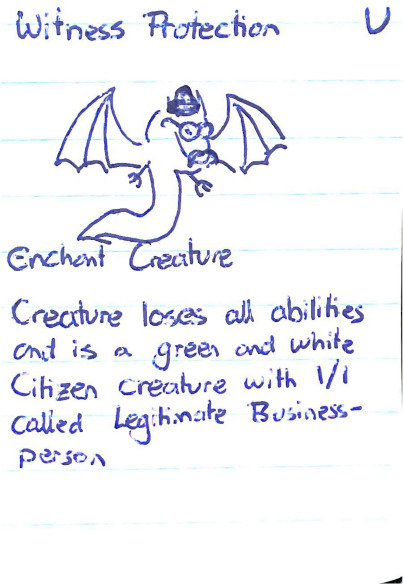 Witness Protection U
Enchant Creature
Creature loses all abilities
and is a green and white
Citizen creature with 1/1
called Legitimate Business-
person